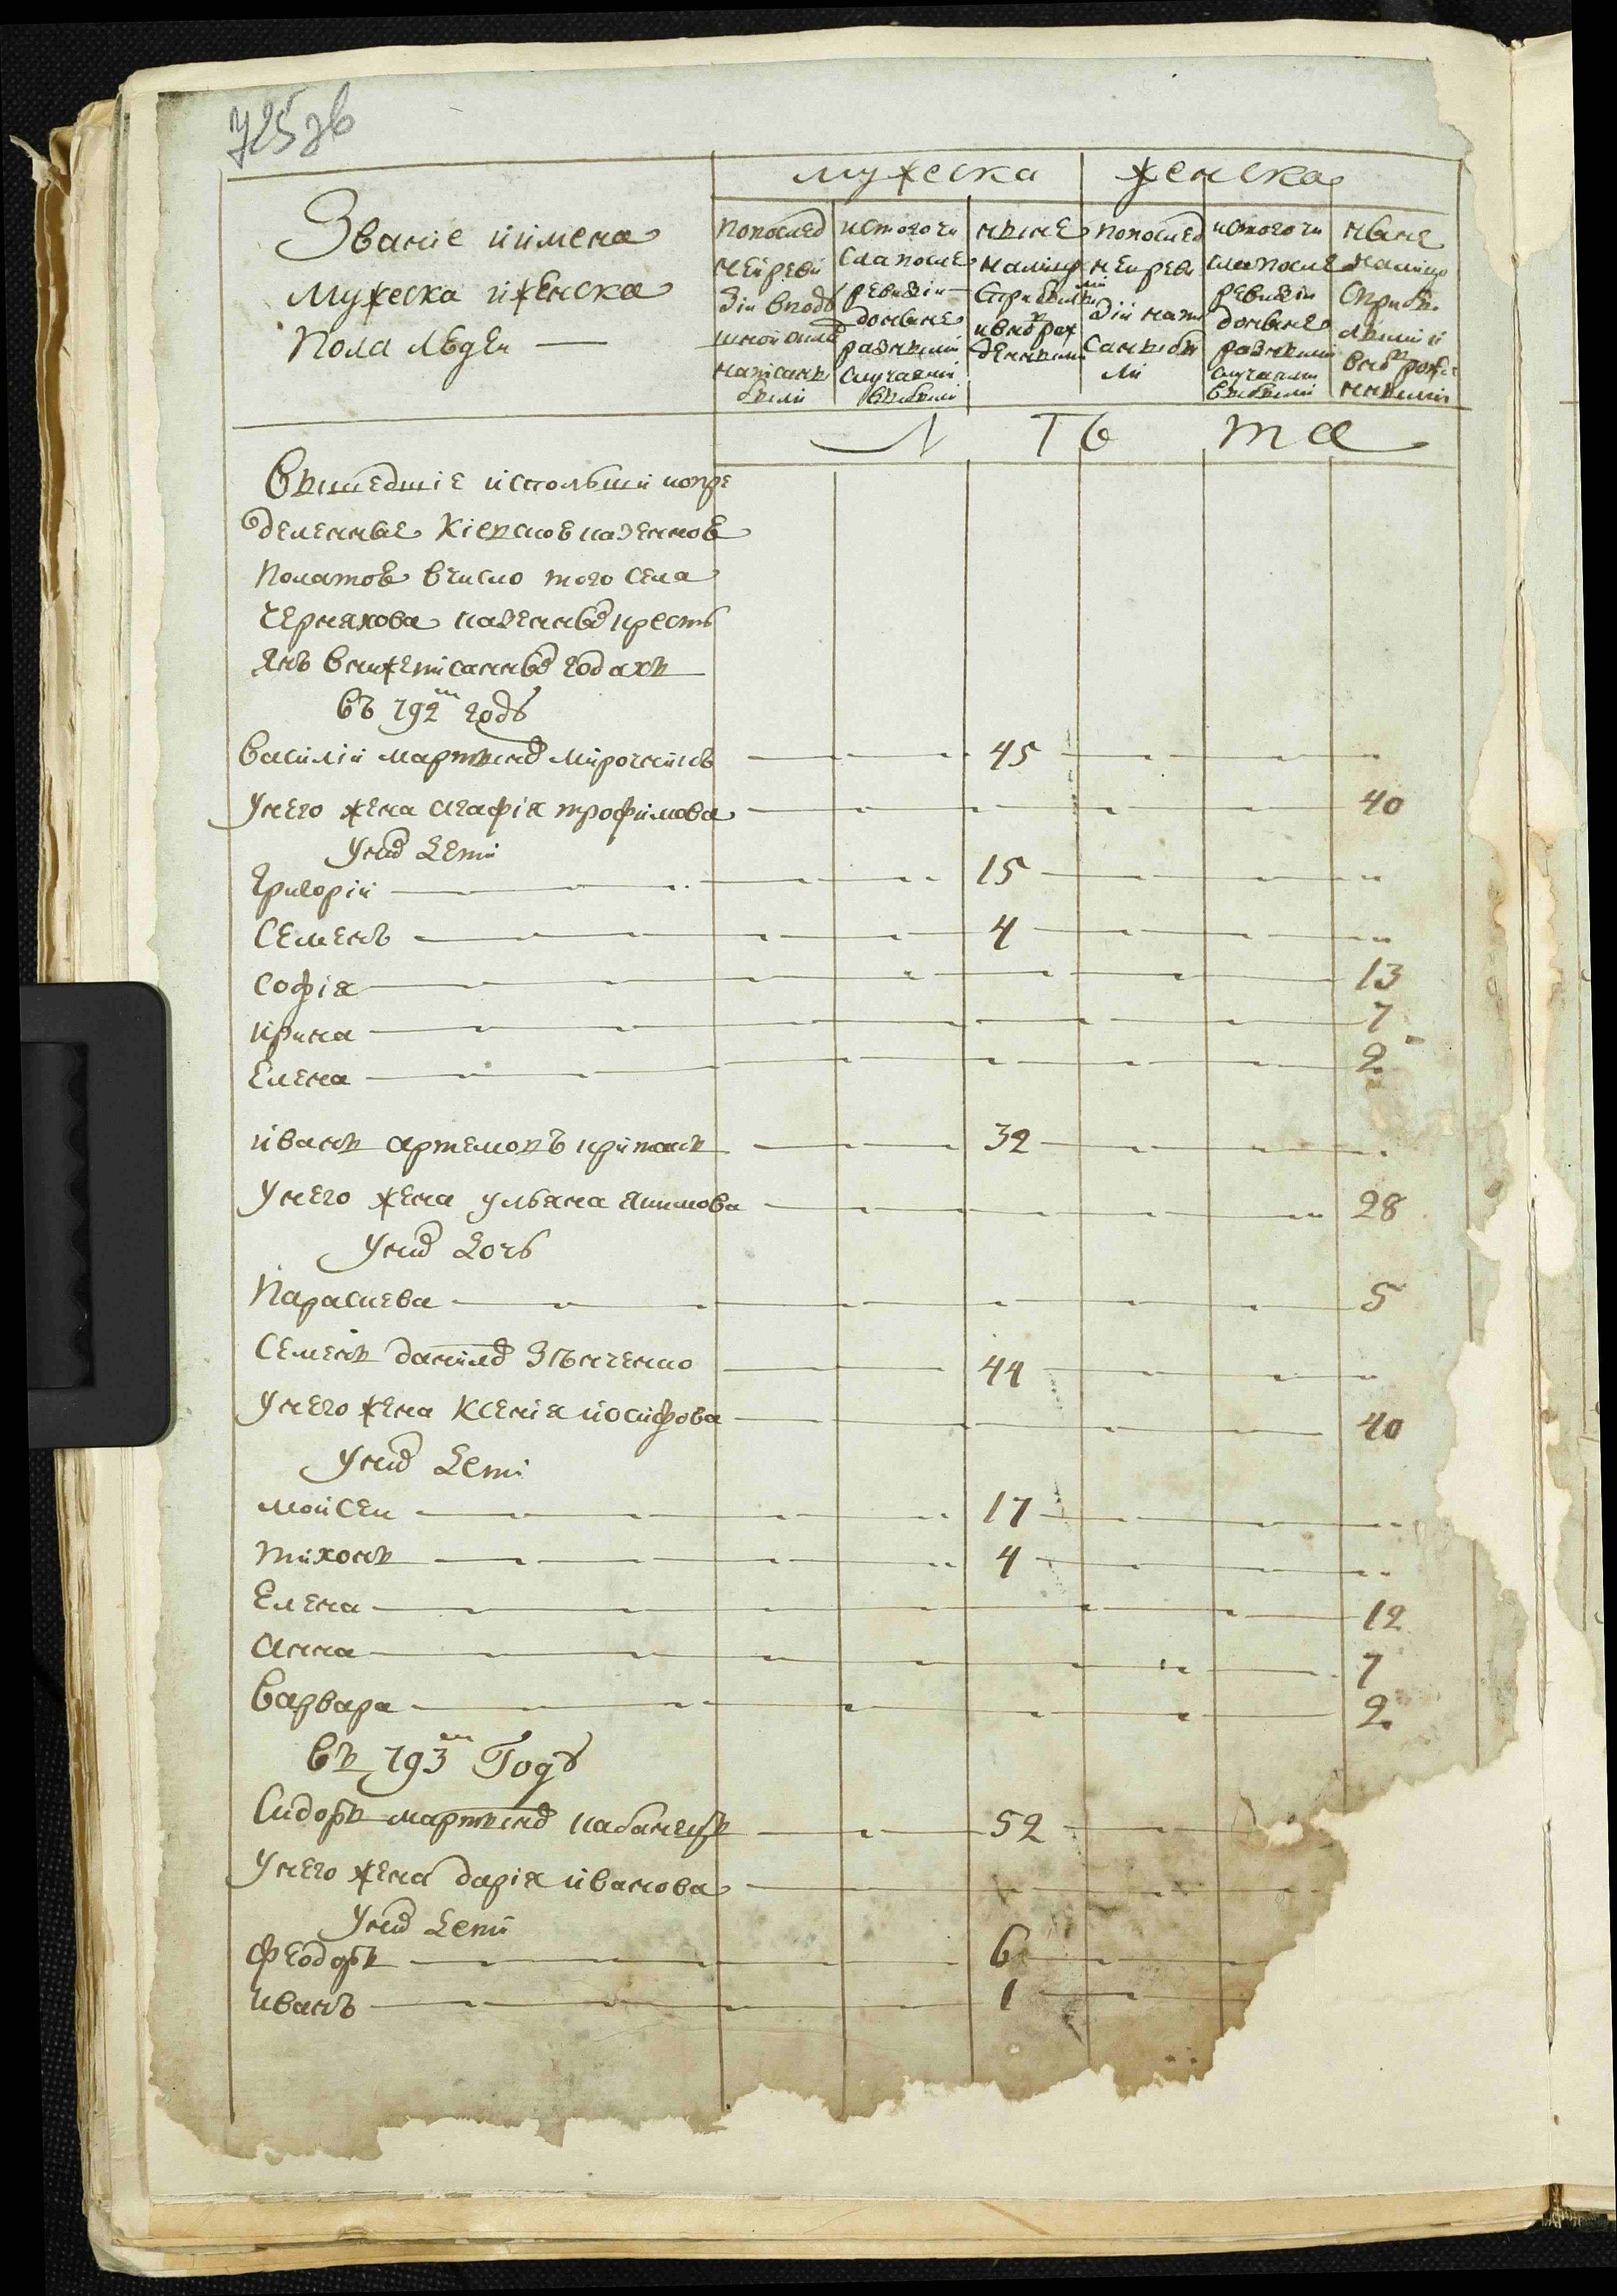 725 зв
мужеска женска
Званіе и имена
мужеска и женска
пола людей
по послед
ней реви
зіи в подъ
написанъ
были
ис того чи
сла после
ревизіи
до ныне
разными
случаями
выбыли
ныне
налицо
с прибылыми
и внов рож
денными
по послед
ней реви
зіи напи
саны бы
ли
ис того чи
сла после
ревизіи
до ныне
разными
случаями
выбыли
ныне
налицо
с прибы
лыми и
внов рожде
нными
Л Ть т а
Вышедшіе ис польши и опре
деленные Кіевскою казенною
полатою в число того села
Чернякова казенных кресть
янъ в нижеписанных годахъ
въ 792м годѣ
василій мартынов мирочникъ 45
у него жена агафія трофимова 40
у них дети
григорій 15
семенъ 4
софія 13
ирина 7
елена 2
иванъ артемовъ критакъ 32
у него жена ульяна якимова 28
у них дочь
Параскева 5
семенъ данилов Зѣнченко 44
у него жена ксенія иосифова 40
у них дети
мойсей 17
тихонъ 4
елена 12
анна 7
варвара 2
въ 793м Годѣ
сидоръ мартынов кабанецъ 52
у него жена дарія иванова
у них дети
феодоръ 6
иванъ 1